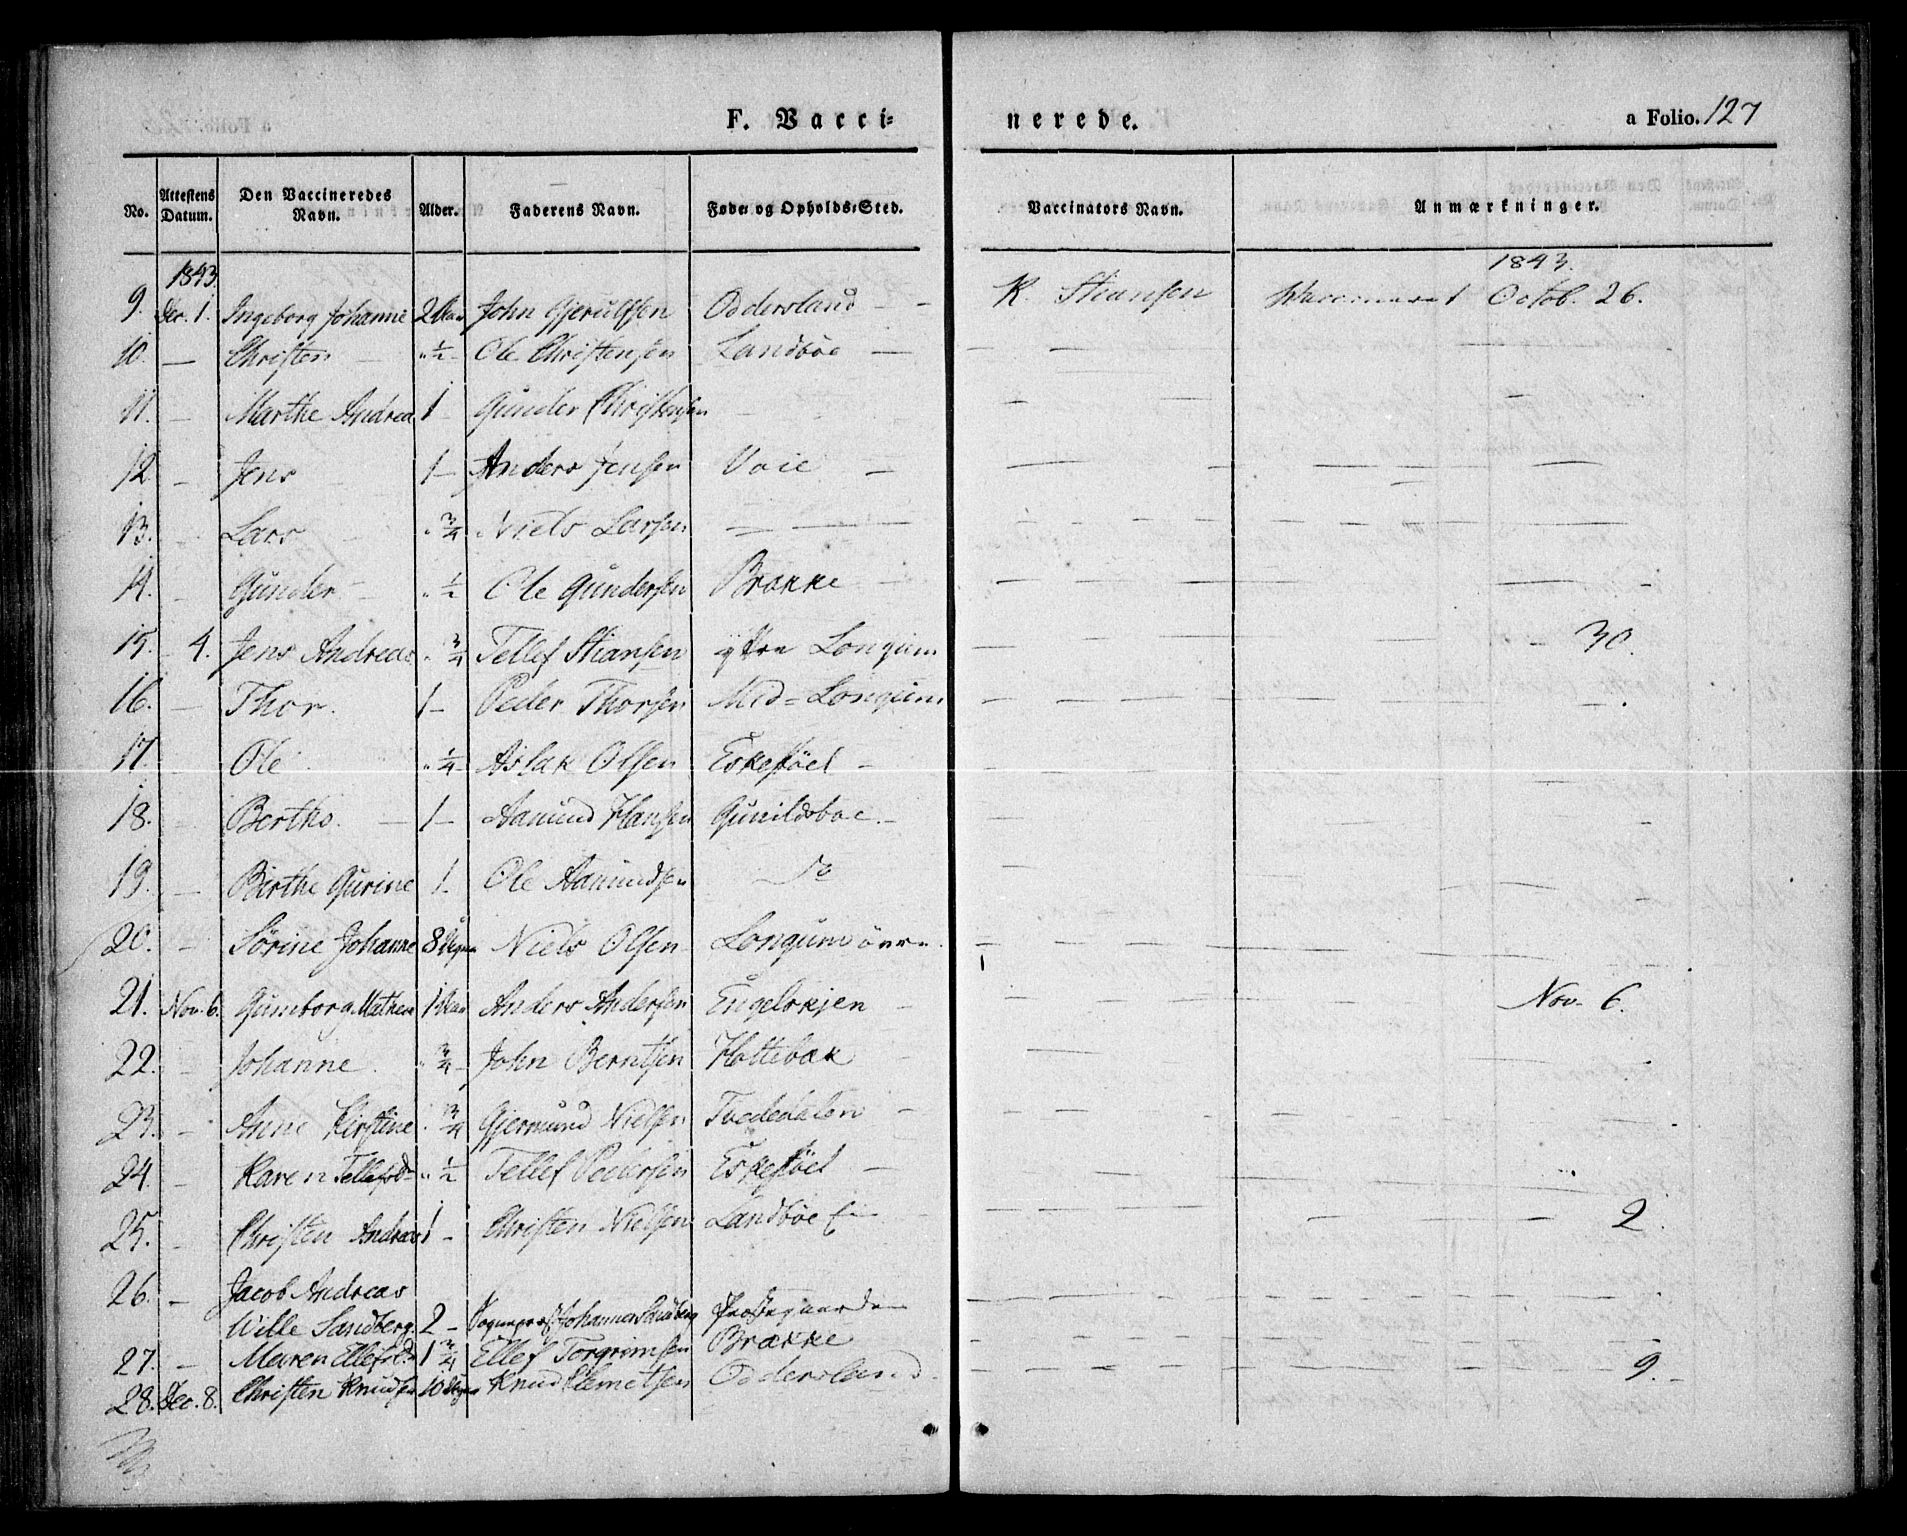 F. Vacci=
nerede.
a Folio. 127
No. Attestens Datum. Den Vaccineredes Navn. Alder. Faderens Navn. Føde= og Opholds=Sted. Vaccinators Navn. Anmærkninger.
1843. 1843.
9. Dec. 1. Ingeborg Johanne 2 John Gjerulfsen Oddersland - - K. Stiansen Octob. 26.
10. — Christen — " ½ - Ole Christensen Landbøe —
11. — Marthe Andrea 1 - Gunder Christensen
12 — Jens 1 - Anders Jensen Voie —
13. - Lars " ¾ Niels Larsen — — —
14. - Gunder - " ½ Ole Gundersen Brække —
15. - 4. Jens Andreas " ¾ Tellef Stiansen ÿtre Longum — - 30.
16. — Thor. 1 - Peder Thorsen Mid=Longum —
17. Ole " ¼ - Aslak Olsen Eskefiel -
18. - Berthe. — 1 - Aamund Hansen Gunildsboe. -
19. — Birthe Gurine 1 - Ole Aamundsen do
20. - Sørine Johanne 8 Niels Olsen Longum övre. —
21. Nov. 6. Gunborg Mathea 1 Anders Andersen Engelskjen - Nov. 6.
22. - Johanne. " ¾ - John Berntsen Flottebæk -
23. - Anne Kirstine " ¾ Gjermund Nielsen Tvededalen -
24 - Karen Tellefsd. " ½ Tellef Pedersen Eskefiel —
25. - Christen Andreas 1 - Christen Nielsen Landbøe 2.
26. - Jacob Andreas
Wille Sandberg. 2 - Sogneprest Johannes Sandberg Præstegaarden
27. — Maren Ellefsd. 1 ¾ Ellef Torgrimsen Brække 9. -
28. Dec. 8. Christen Knudsen 10 Knud Clemetsen Oddersland.